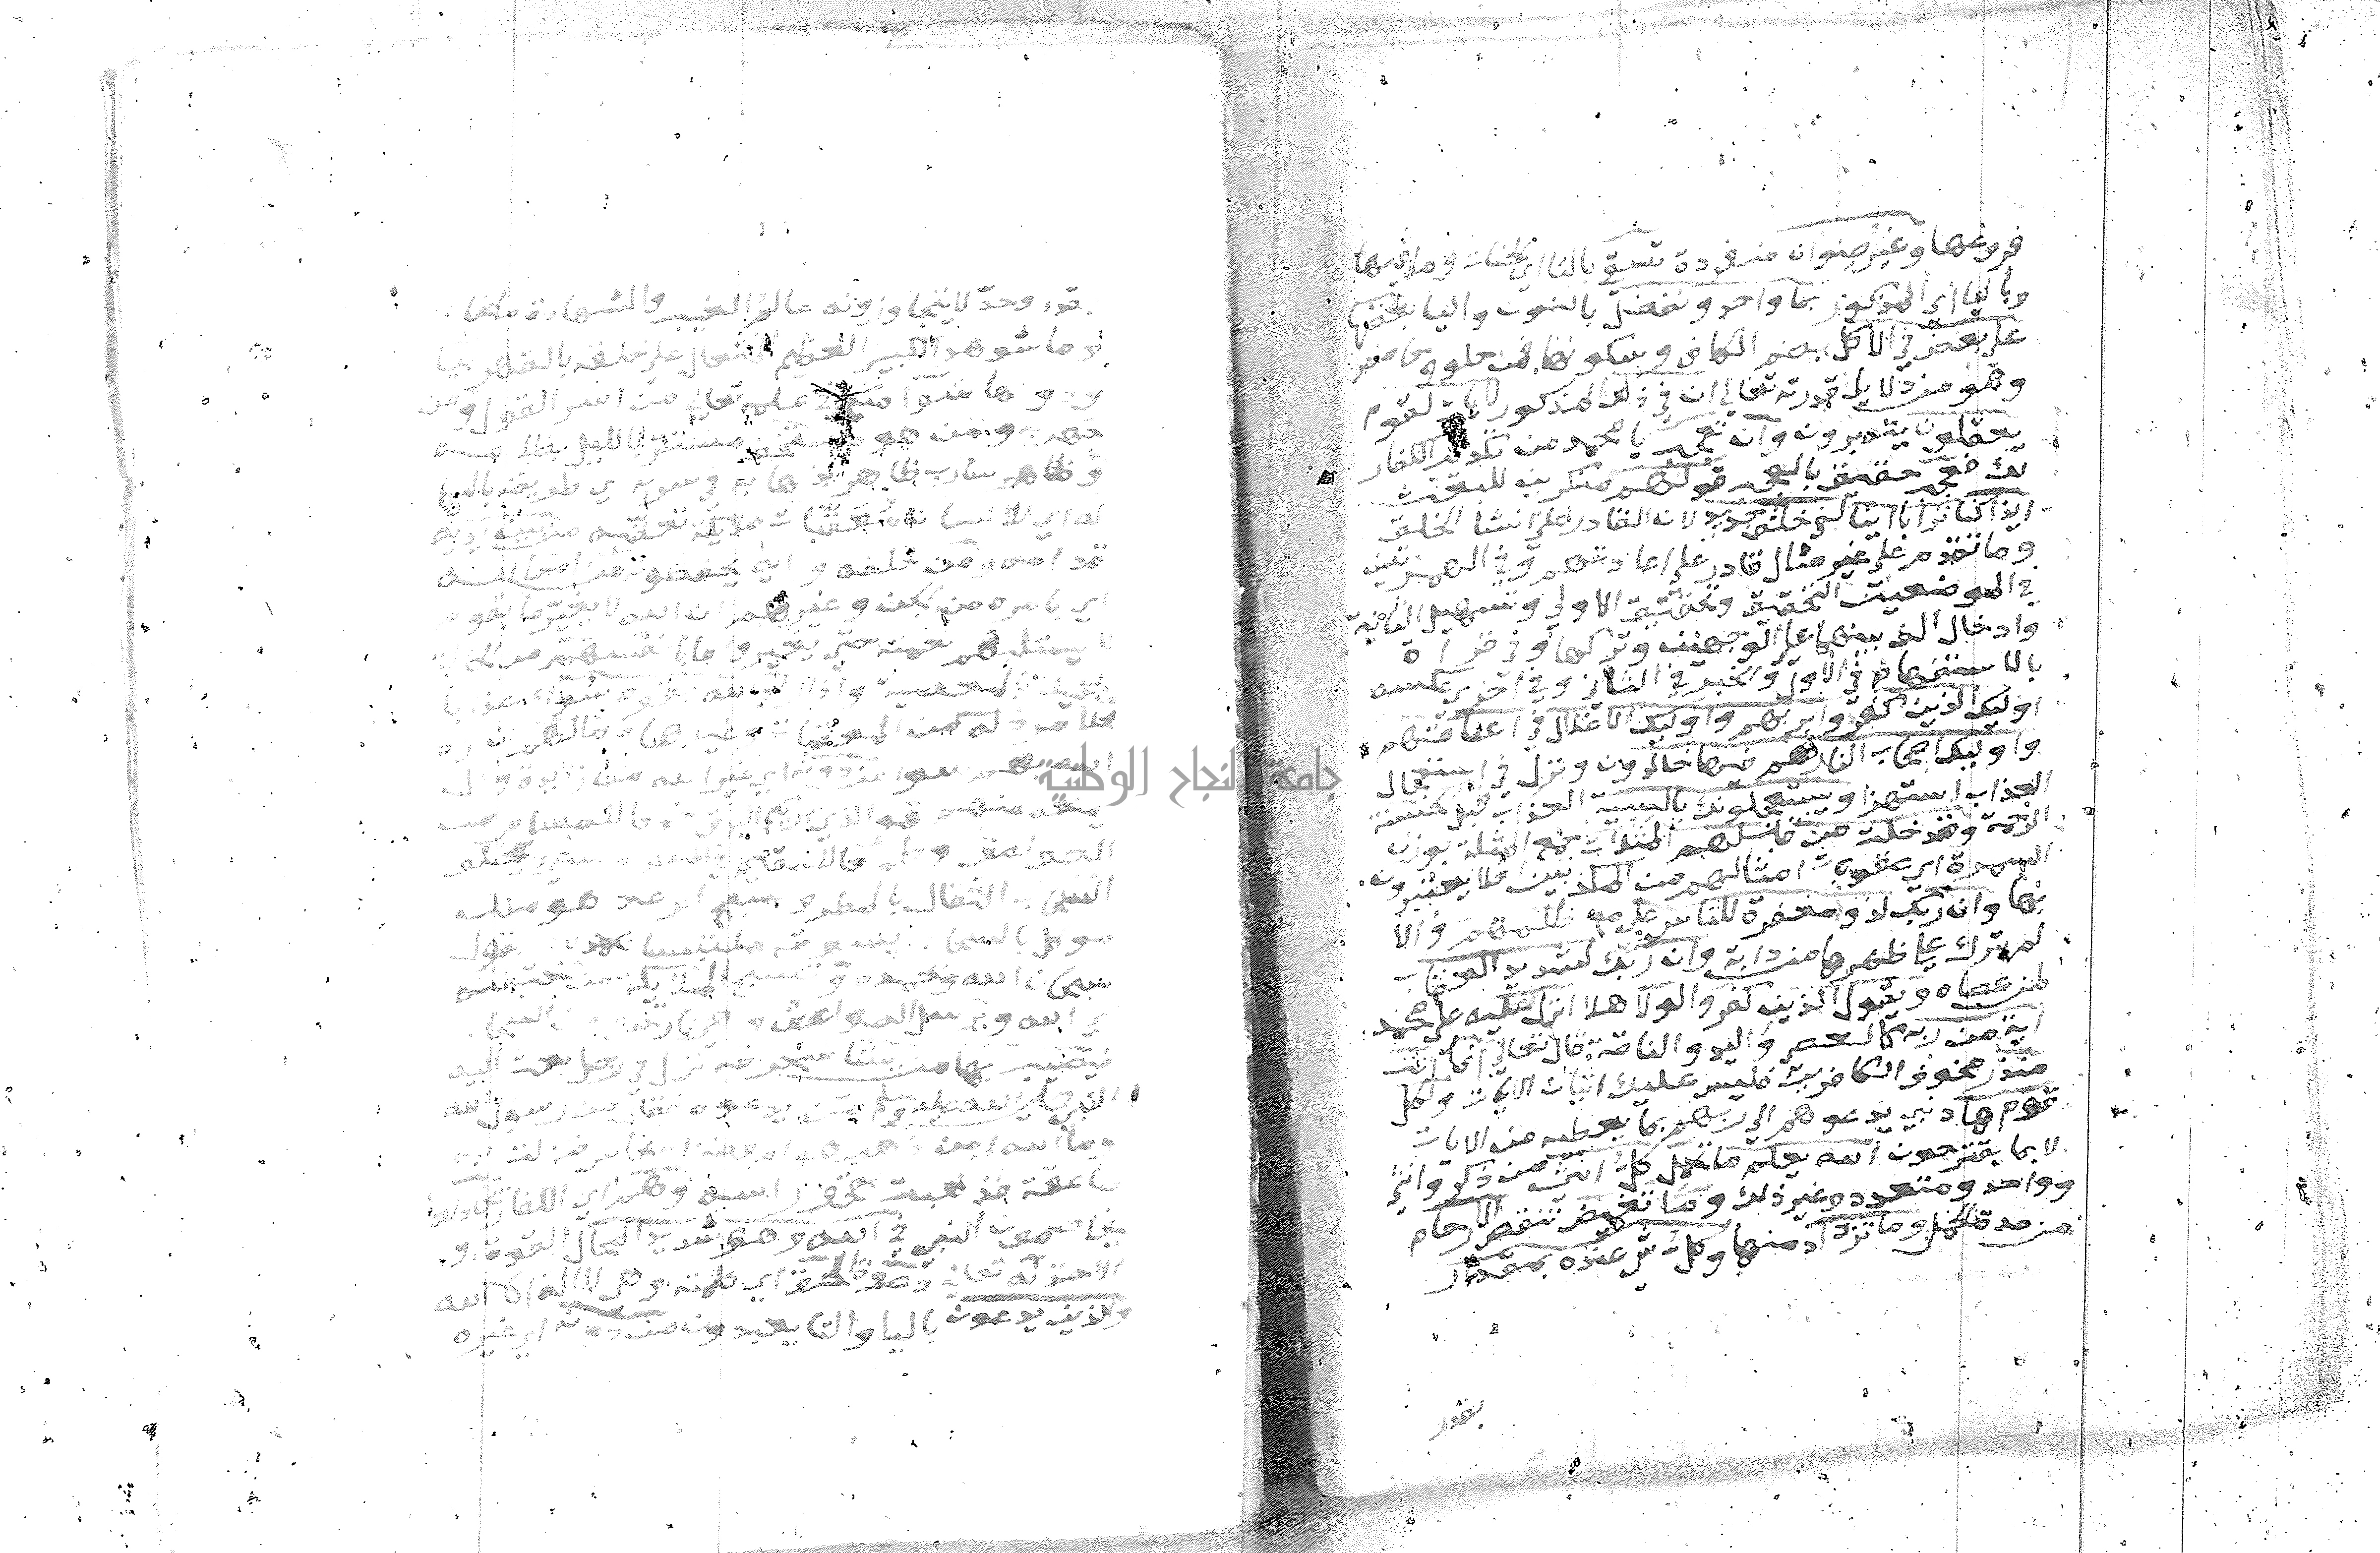 فروعها وغير صنوان منفردة تسقي بالتا اي الجنات وما فيها
وباليا اي المذكور بما واحد ونفضل بالنون واليا بعضها
علي بعض في الاكل بضم الكاف وسكونها فمن حلو وحامض
وهو من دلايل قدرته تعالي ان في ذلك المذكور لايات لقوم
يعقلون يتدبرون وان تعجب يا محمد من تكذيب الكفار
لك فعجب حقيق بالعجب قولهم منكرين للبعث
ايذا كنا ترابا اينا لفي خلق جديد لان القادر علي انشا الخلق
وما تقدم علي غير مثال قادر علي اعادتهم وفي الهمزتين
في الموضعين التحقيق وتحقيق الاولي وتسهيل الثانية
وادخال الف بينهما علي الوجهين وتركها وفي قراة
بالاستفهام في الاول والخبر في الثاني وفي اخري عكسه
اوليك الذين كفروا بربهم واوليك الاغلال في اعناقهم
واوليك اصحاب النار هم فيها خالدون ونزل في استعجال
العذاب استهزا ويستعجلونك بالسيية العذاب قبل الحسنة
الرحمة وقد خلت من قبلهم المثلات جمع المثلة بوزن
السمرة اي عقوبات امثالهم من المكذبين افلا يعتبرون
بها وان ربك لذو مغفرة للناس علي مع ظلمهم والا
لم يترك علي ظهرها من دابة وان ربك لشديد العقاب
لمن عصاه ويقول الذين كفروا لولا هلا انزل عليه علي محمد
اية من ربه كالعصي واليد والناقة قال تعالي انما انت
منذر مخوف الكافرين فليس عليك اتيان الايات ولكل
قوم هاد نبي يدعوهم الي ربهم بما يعطيه من الايات
لا بما يقترحون الله يعلم ما تحمل كل انثي من ذكر وانثي
وواحد ومتعدد وغير ذلك وما تغيض تنقص الارحام
من مدة الحمل وما تزداد منها وكل شي عنده بمقدار
بقدر
بقدر وحد لا يتجاوزونه عالم الغيب والشهادة ما غاب
وما شوهد الكبير العظيم المتعال علي خلقه بالقهر بيا
ودونها سوآ منكم في علمه تعالي من اسر القول ومن
جهر به ومن هو مستخف مستتر بالليل بظلامه
وظاهر سارب ظاهر بذهابه في سربه اي طريقه بالنها
له اي للانسان معقبات ملايكة تعقبه من بين يديه
قدامه ومن خلفه ورايه يحفظونه من امر الله
اي بامره من الجن وغيرهم ان الله لا يغير ما بقوم
لا يسلبهم نعمته حتي يغيروا ما بانفسهم من الحالة
الجميلة بالمعصية واذا اراد الله بقوم سوا عذابا
فلا مرد له من المعقبات وغيرها وما لهم
من دونه اي غير الله من زايدة وال
يمنعه عنهم هو الذي يريكم البرق خوفا للمسافرين من
الصواعق وطمعا للمقيم في المطر وينشي يخلق
السحاب الثقال بالمطر ويسبح الرعد هو ملك
موكل بالسحاب يسوقه ملتبسا بحمده اي يقول
سبحان الله وبحمده وتسبح الملايكة من خيفته
اي الله ويرسل الصواعق وهي نار تخرج من السحاب
فيصيب بها من يشا فتحرقه نزل في رجل بعث اليه
النبي صلي الله عليه وسلم من يدعوه فقال من رسول الله
وما الله امن ذهب هو ام من فضة ام نحاس فنزلت به
صاعقة فذهبت بقحف راسه وهم اي الكفار يجادلون
يخاصمون النبي في الله وهو شديد المحال القوة او
الاخذ له تعالي دعوة الحق اي كلمته وهي لا اله الا الله
والذين يدعون باليا والتا يعبدون من دونه اي غيره
جامعة النجاح الوطنية